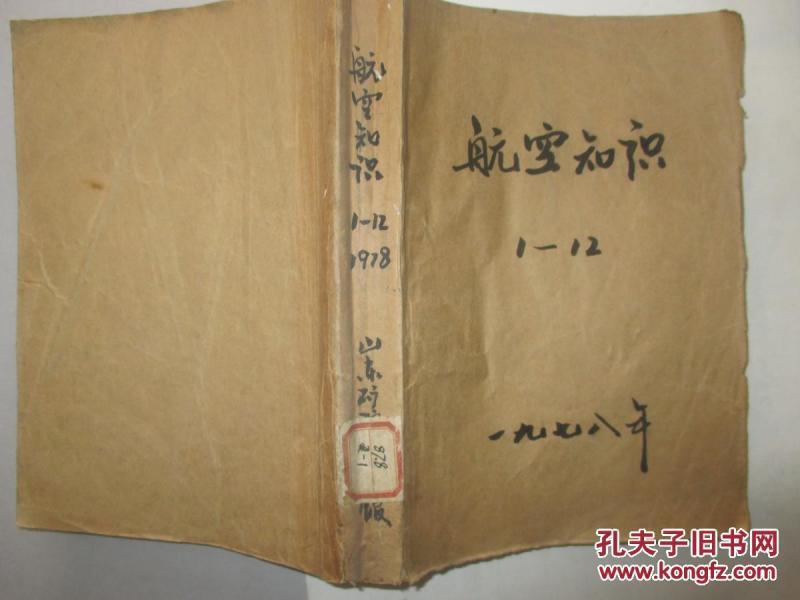 航空知识
1-12
一九七八年
航空知识
1-12
1978
山东矿
1-12
878
孔夫子旧书网
www.kongfz.com